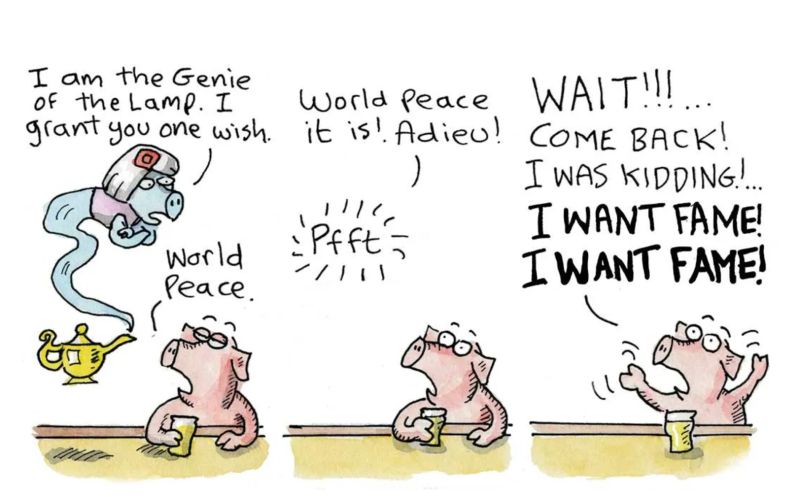 I am the Genie
of the Lamp. I
grant you one wish.
World
Peace.
World Peace
it is! Adieu!
Pfft
WAIT!!!...
COME BACK!
I WAS KIDDING!...
I WANT FAME!
I WANT FAME!